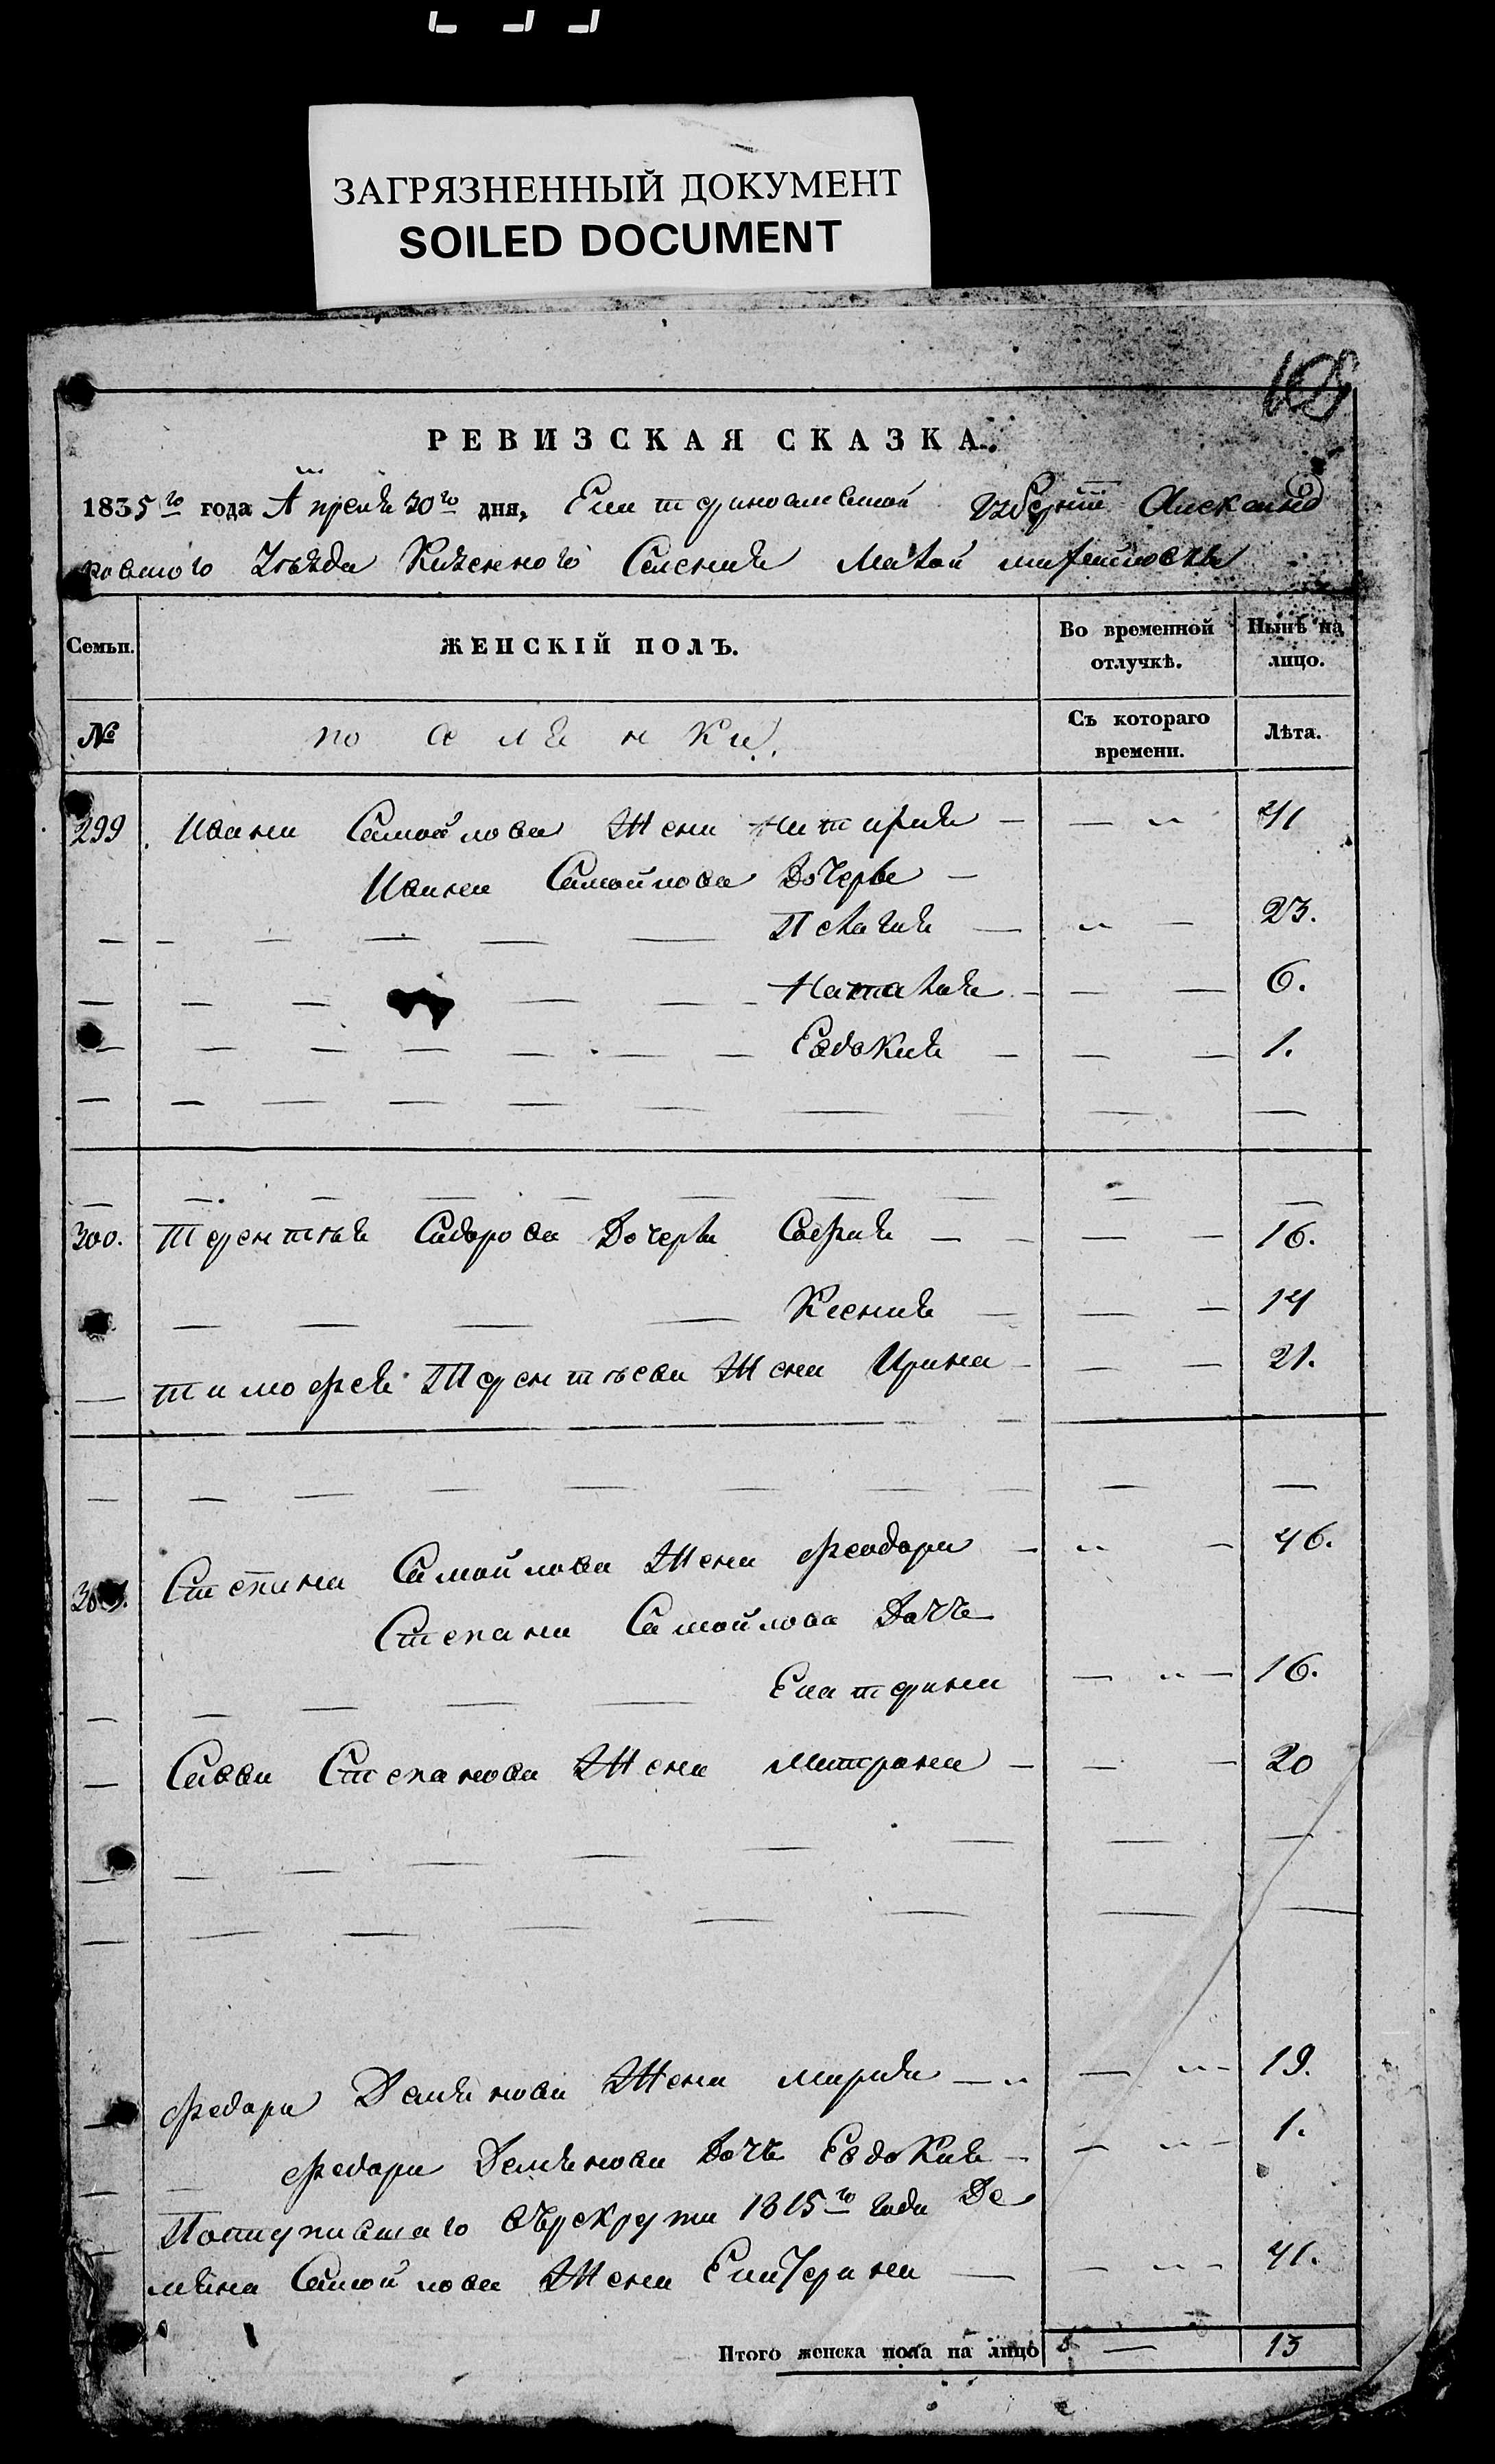 ЗАГРЯЗНЕННЫЙ ДОКУМЕНТ
SOILED DOCUMENT
РЕВИЗСКАЯ СКАЗКА.
1835го года Апреля 30го дня, Екатеринославской губернiи Александ
ровского Уѣзда Казенного Селения Малой
Семьи. ЖЕНСКІЙ ПОЛЪ. Во временной отлучкѣ. Нынѣ на лицо.
№ поселянки. Съ котораго времени. Лѣта.
299 Ивана Самойлова Жена 41
Ивана Самойлова Дочери
Пелагия 23.
Наталия 6.
Евдокия 1.
300. Терентъя Сидорова Дочери София 16.
Ксения 14
Тимофея Терентъева Жена Ирина 21.
Степана Самойлова Жена Феодора 46.
Степана Самойлова Дочь
Екатерина 16.
Савы Степанова Жена Матрона 20
Федора Демянова Жена Мария 19.
Федора Демянова Дочь Евдокия 1.
Поступившаго врекруты 1815го года Де
мяна Самойлова Жена Екатерина 41.
Итого женска пола на лицо 13